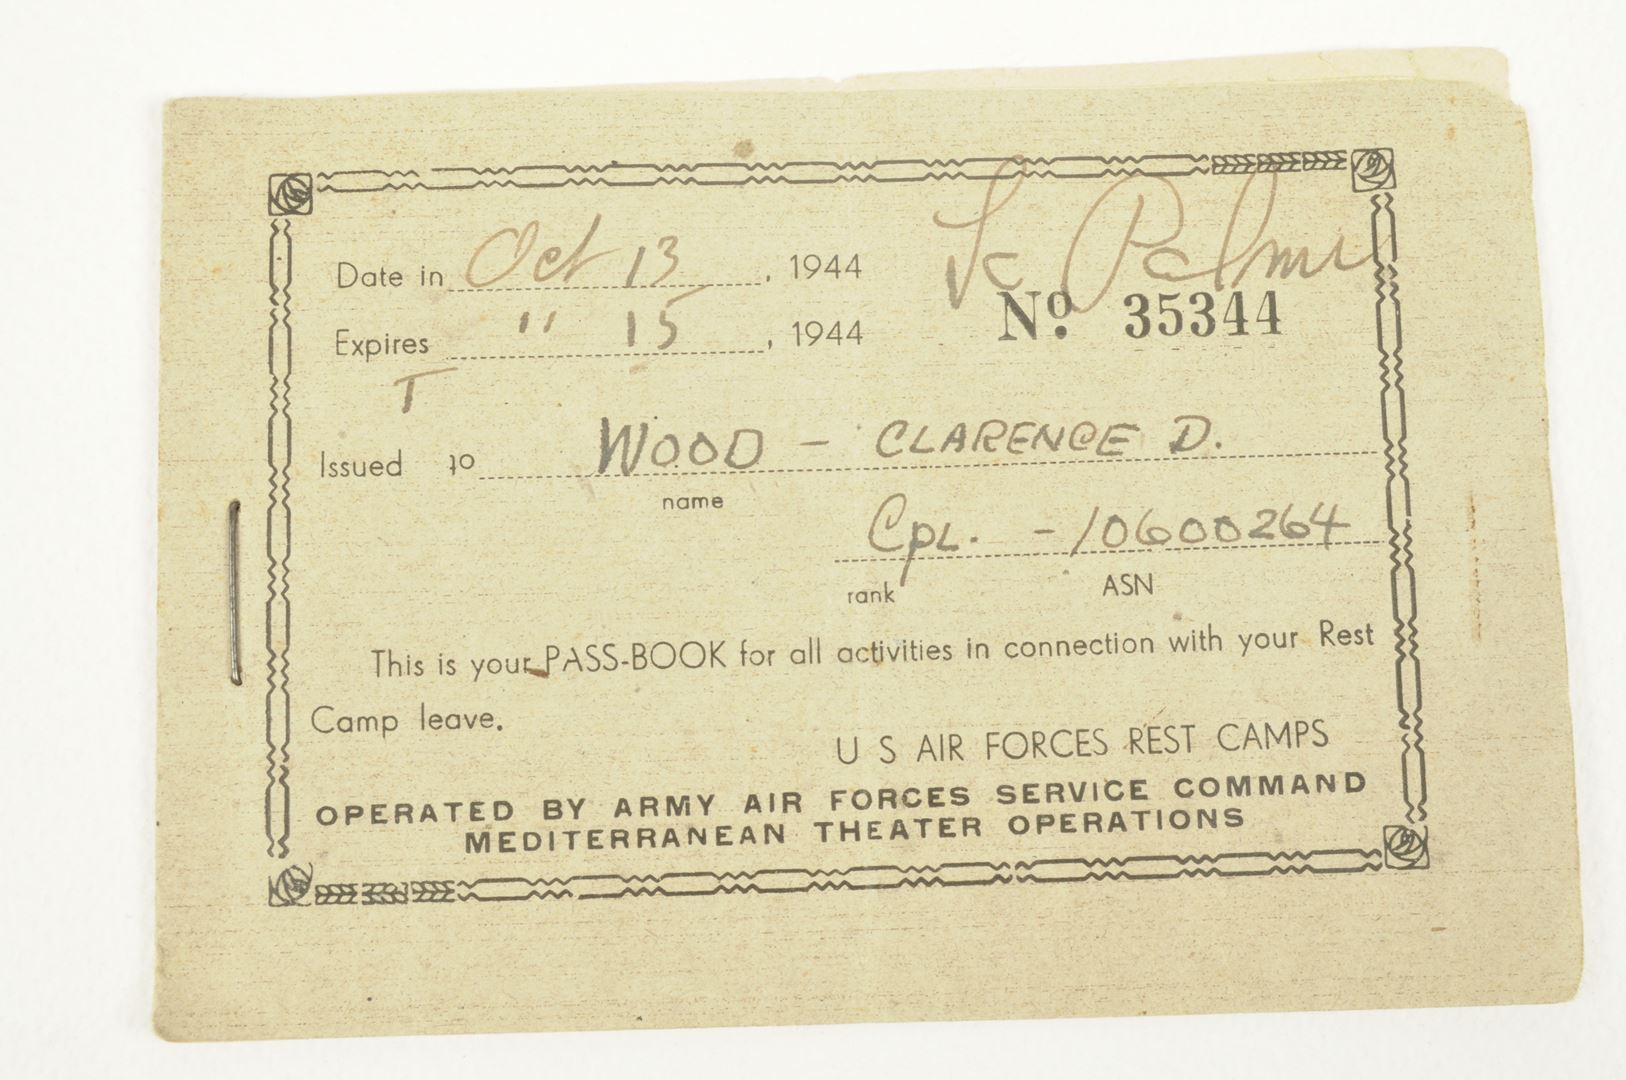 La Palma
Date in Oct 13, 1944
Nº. 35344
Expires " 15, 1944
T
Issued to WOOD - CLARENCE D.
name
Cpl. - 10600264
rank ASN
This is your PASS-BOOK for all activities in connection with your Rest
Camp leave.
U S AIR FORCES REST CAMPS
OPERATED BY ARMY AIR FORCES SERVICE COMMAND
MEDITERRANEAN THEATER OPERATIONS